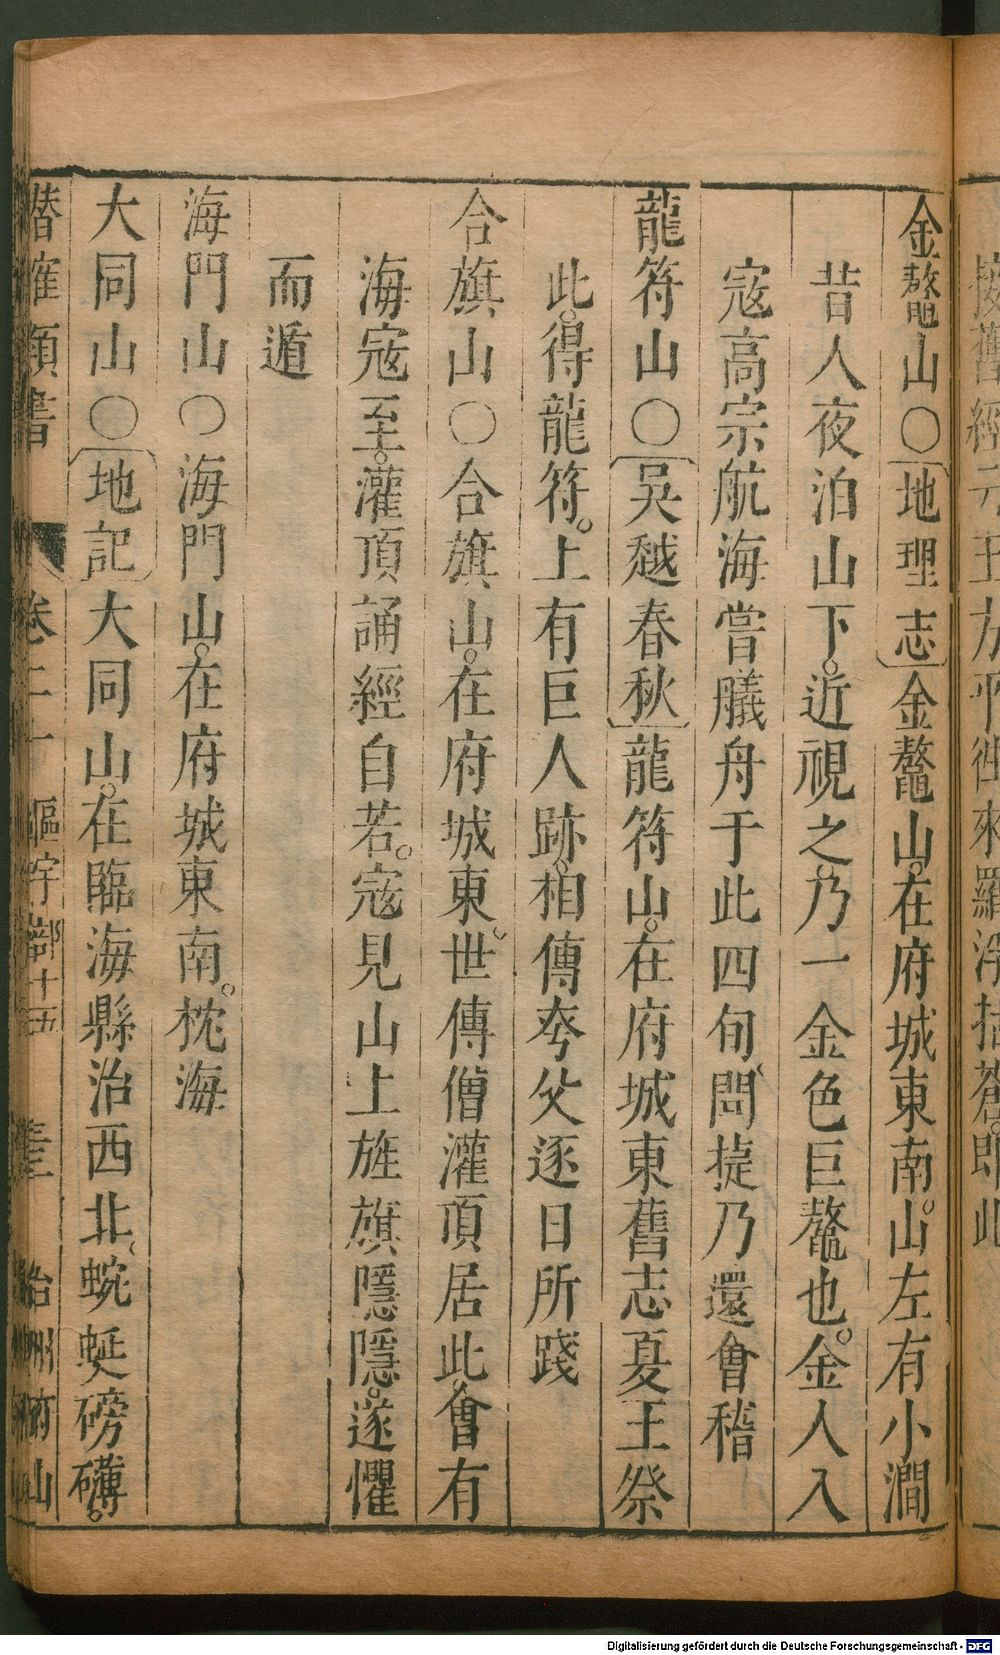 按舊經元王方平徃來羅浮括蒼。即此
金鼇山○〔地理志〕金鼇山。在府城東南。山左有小澗
昔人夜泊山下。近視之。乃一金色巨鼇也。金人入
寇高宗航海嘗艤舟于此四旬、聞捷乃還會稽
龍符山○〔吳越春秋〕龍符山。在府城東舊志夏王祭
此。得龍符。上有巨人跡。相傳夸父逐日所踐
合旗山○合旗山。在府城東。世傳僧灌頂居此。會有
海寇至。灌頂誦經自若。寇見山上旌旗隱隱。遂懼
而遁
海門山○海門山。在府城東南。枕海
大同山○〔地記〕大同山。在臨海縣治西北、蜿蜒磅礴。
潛確類書 卷二十 區宇部十五 台州府山
Digitalisierung gefördert durch die Deutsche Forschungsgemeinschaft - DFG